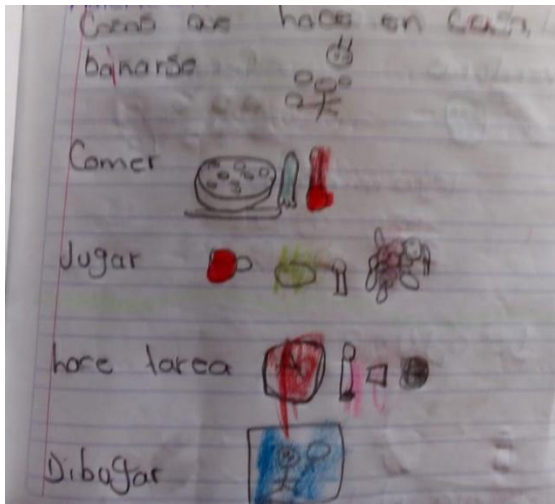 Cosas que hace en casa
bañarse
Comer
Jugar
hore tarea
Dibugar